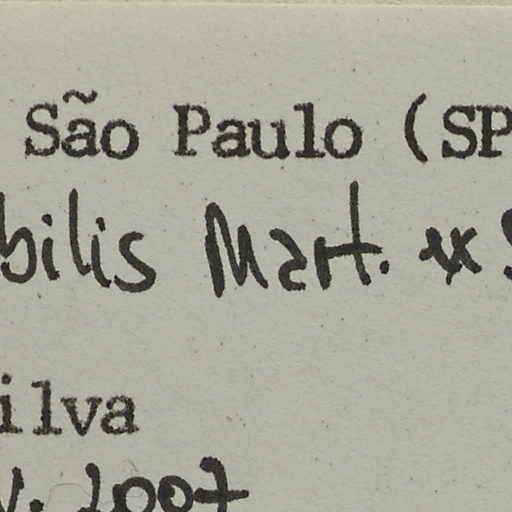 São Paulo (SP
bilis Mart. ex S
ilva
v. 2007